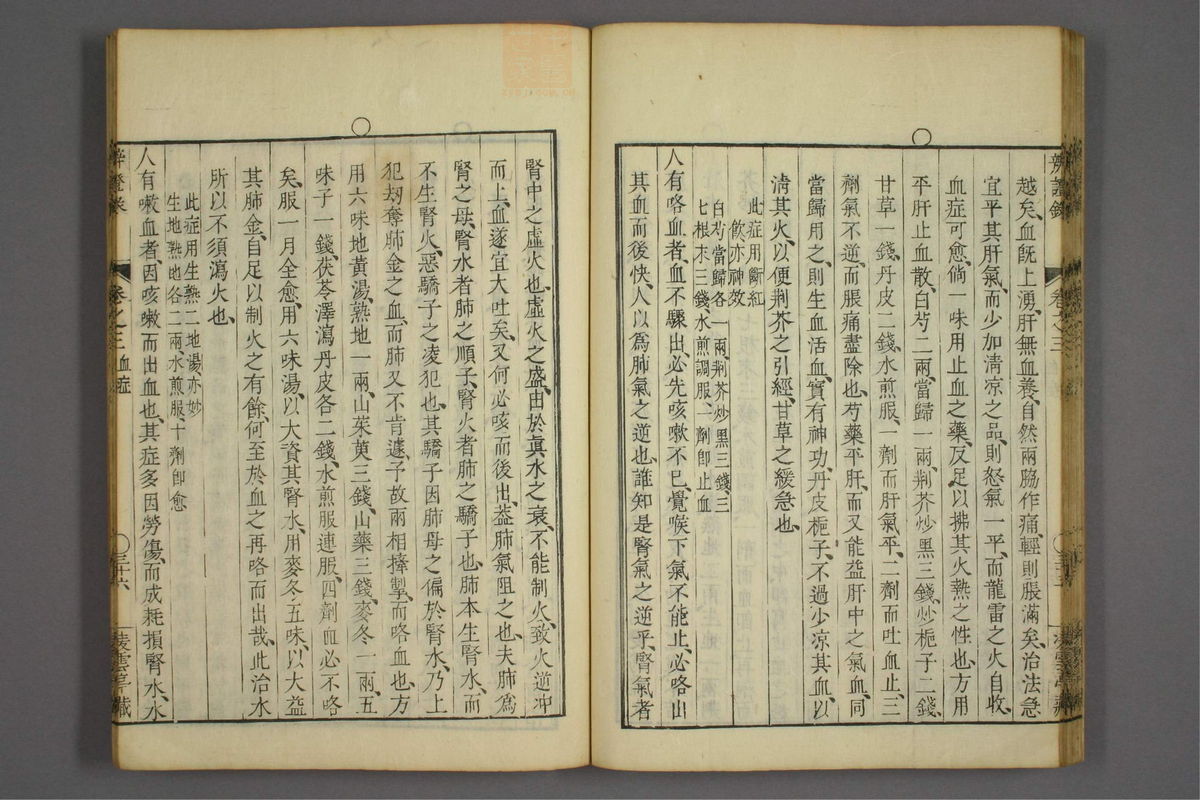 越矣、血旣上湧、肝無血養、自然兩脇作痛、輕則脹滿矣、治法急
宜平其肝氣、而少加淸凉之品、則怒氣一平、而龍雷之火自收、
血症可愈、倘一味用止血之藥、反足以拂其火熱之性也、方用
平肝止血散、白芍二兩、當歸一兩、荆芥炒黑三錢、炒梔子二錢、
甘草一錢、丹皮二錢、水煎服、一劑而肝氣平、二劑而吐血止、三
劑氣不逆、而脹痛盡除也、芍藥平肝、而又能益肝中之氣血、同
當歸用之、則生血活血、實有神功、丹皮梔子、不過少凉其血、以
淸其火、以便荆芥之引經、甘草之緩急也、
此症用斷紅
飮亦神效
白芍當歸各一兩、荆芥炒黑三錢、三
七根末三錢、水煎調服、一劑卽止血
人有咯血者、血不驟出、必先咳嗽不已、覺喉下氣不能止、必咯出
其血而後快、人以爲肺氣之逆也、誰知是腎氣之逆乎、腎氣者
腎中之虛火也、虛火之盛、由於眞水之衰、不能制火、致火逆冲
而上、血遂宜大吐矣、又何必咳而後出、葢肺氣阻之也、夫肺爲
腎之母、腎水者肺之順子、腎火者肺之驕子也、肺本生腎水、而
不生腎火、惡驕子之凌犯也、其驕子因肺母之偏於腎水、乃上
犯刼奪肺金之血、而肺又不肯遽予、故兩相捧掣、而咯血也、方
用六味地黃湯、熟地一兩、山茱萸三錢、山藥三錢、麥冬一兩、五
味子一錢、茯苓澤瀉丹皮各二錢、水煎服、連服、四劑血必不咯
矣、服一月全愈、用六味湯、以大資其腎水、用麥冬五味、以大益
其肺金、自足以制火之有餘、何至於血之再咯而出哉、此治水
所以不須瀉火也、
此症用生熟二地湯、亦妙
生地熟地各二兩水煎服、十劑卽愈
人有嗽血者、因咳嗽而出血也、其症多因勞傷、而成耗損腎水、水
卷之三
血症
三十六